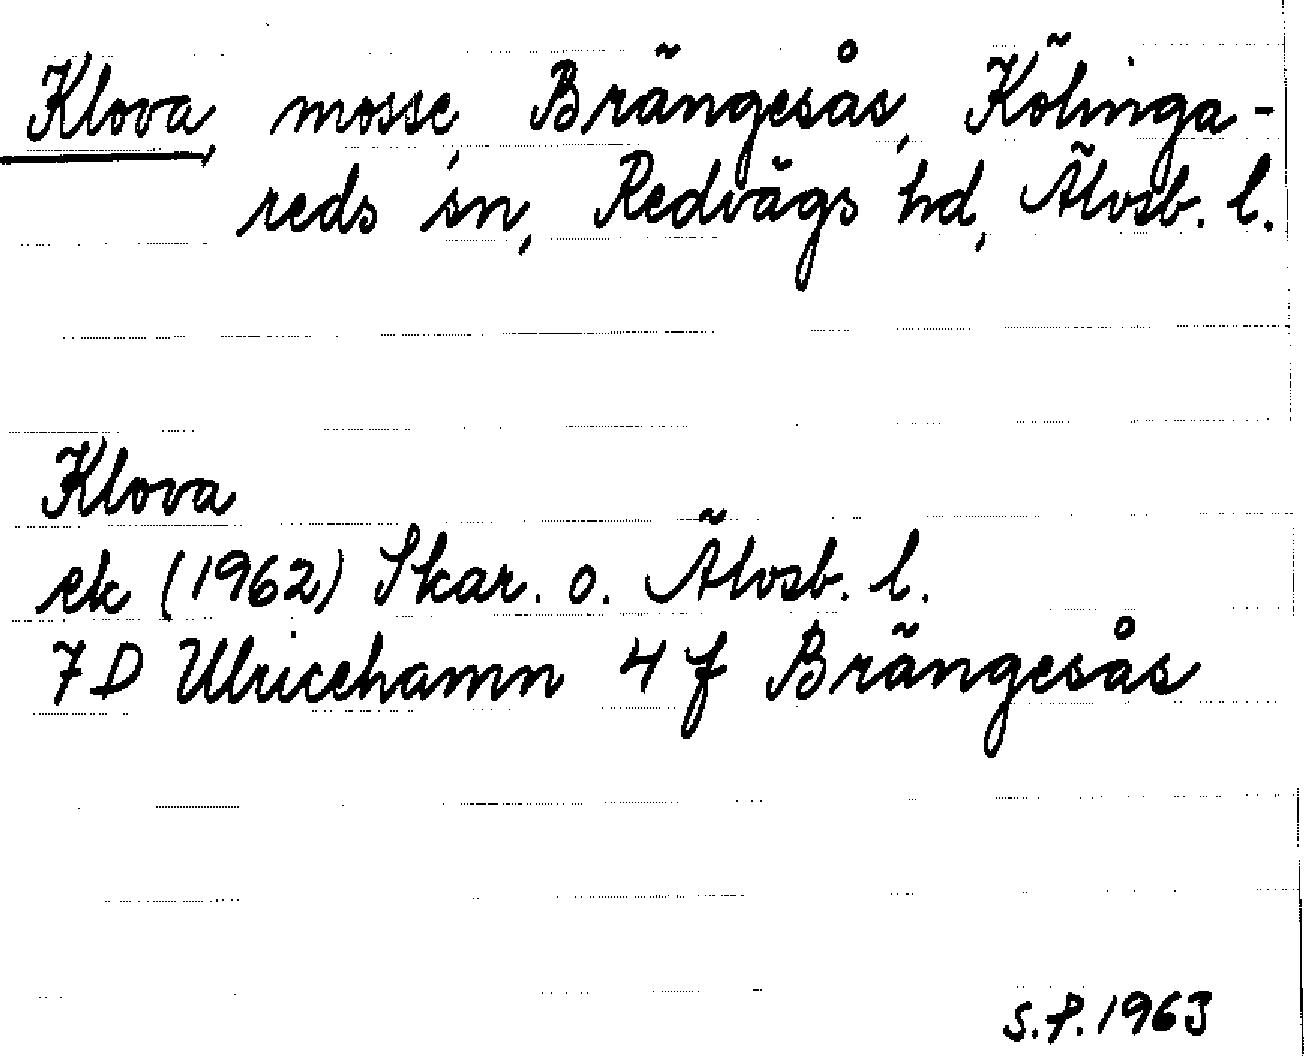 Klova, mosse, Brängesås, Kölinga-
reds sn, Redvägs hd, Älvsb. l.
Klova
ek (1962) Skar. o. Älvsb. l.
7D Ulricehamn 4 f Brängesås
S.P. 1963